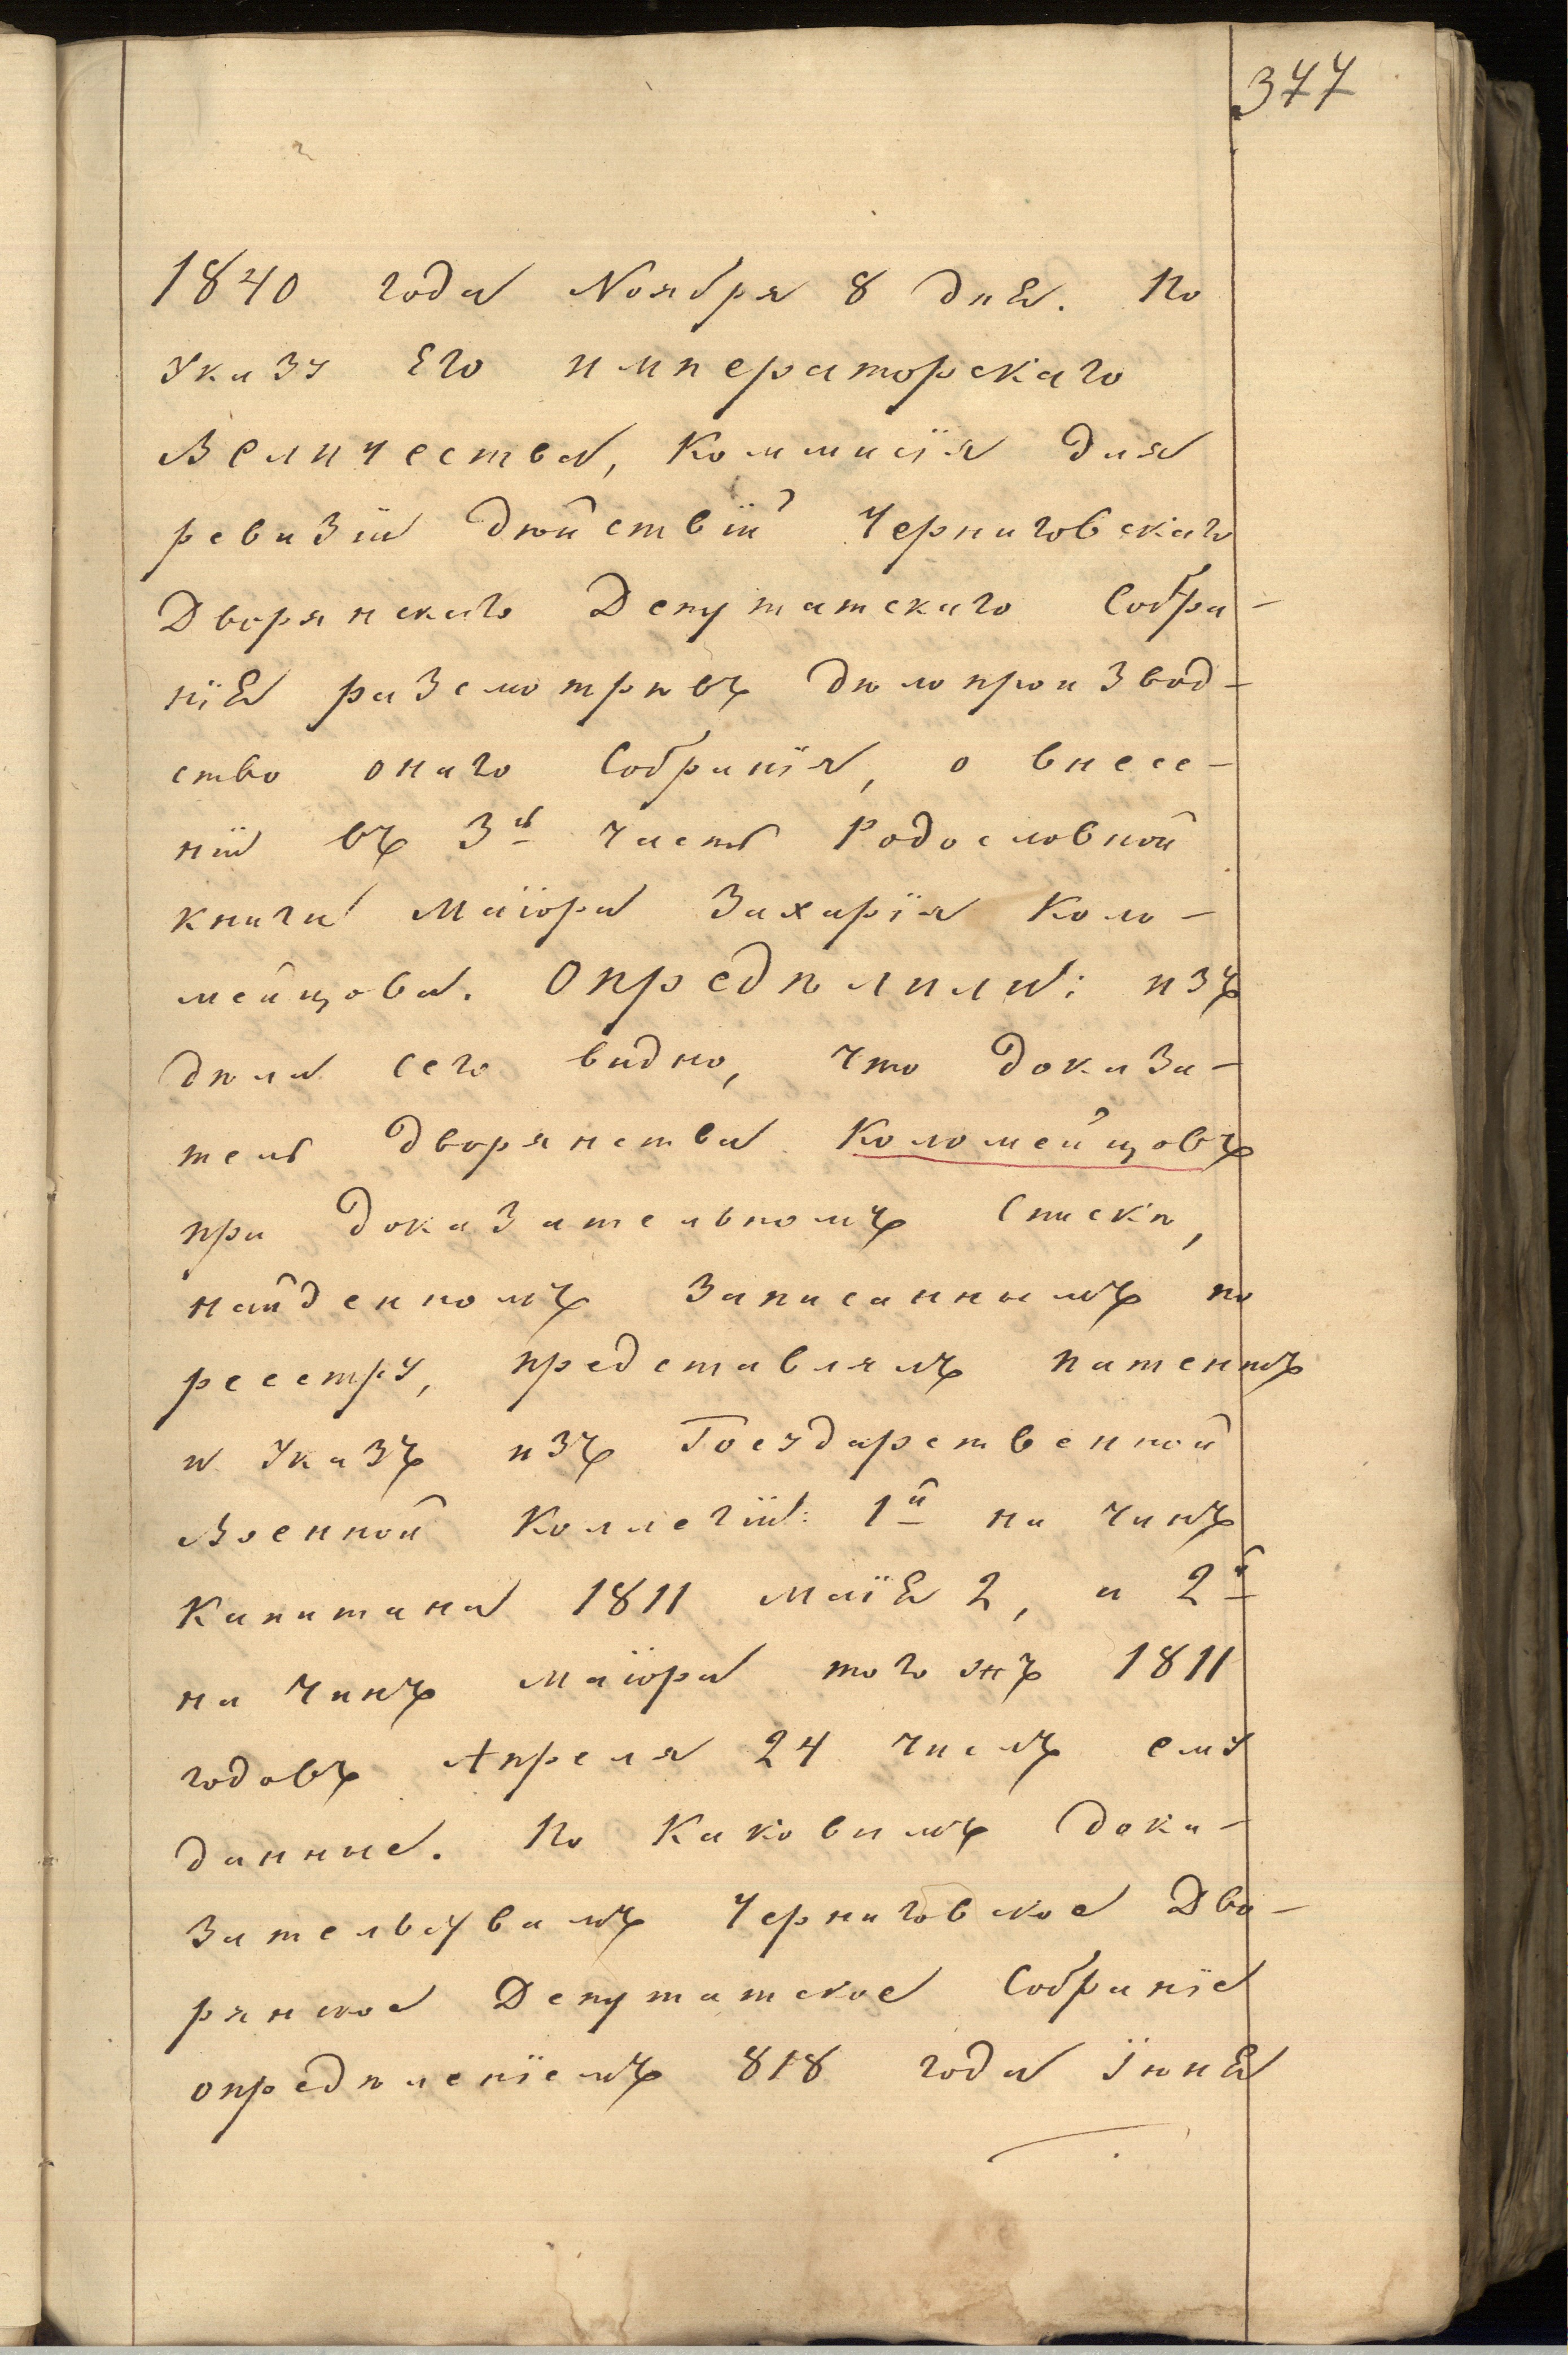 377
1840 года Ноября 8 дня. По
Указу Его императорскаго
Величества, Коммисія для
ревизіи дѣйствій Черниговскаго
Дворянскаго Депутатскаго Собра-
нія разсмотрѣвъ дѣлопроизвод-
ство онаго Собранія, о внесе-
ніи въ 3ю часть Родословной
книги Маіора Захарія Коло-
мейцова. Опредѣлили: изъ
дѣла сего видно, что доказа-
тель дворянства Коломейцовъ
при доказательномъ Спискѣ,
найденномъ Записаннымъ по
реестру, представлялъ патентъ
и Указъ изъ Государственной
Военной Коллегіи: 1й на чинъ
Капитана 1811 маія 2, а 2й
на чинъ маіора того жъ 1811
годовъ Апреля 24 числъ ему
данные. По Каковымъ дока-
зательствамъ Черниговское Дво-
рянское Депутатское Собраніе
опредѣленіемъ 818 года Іюня